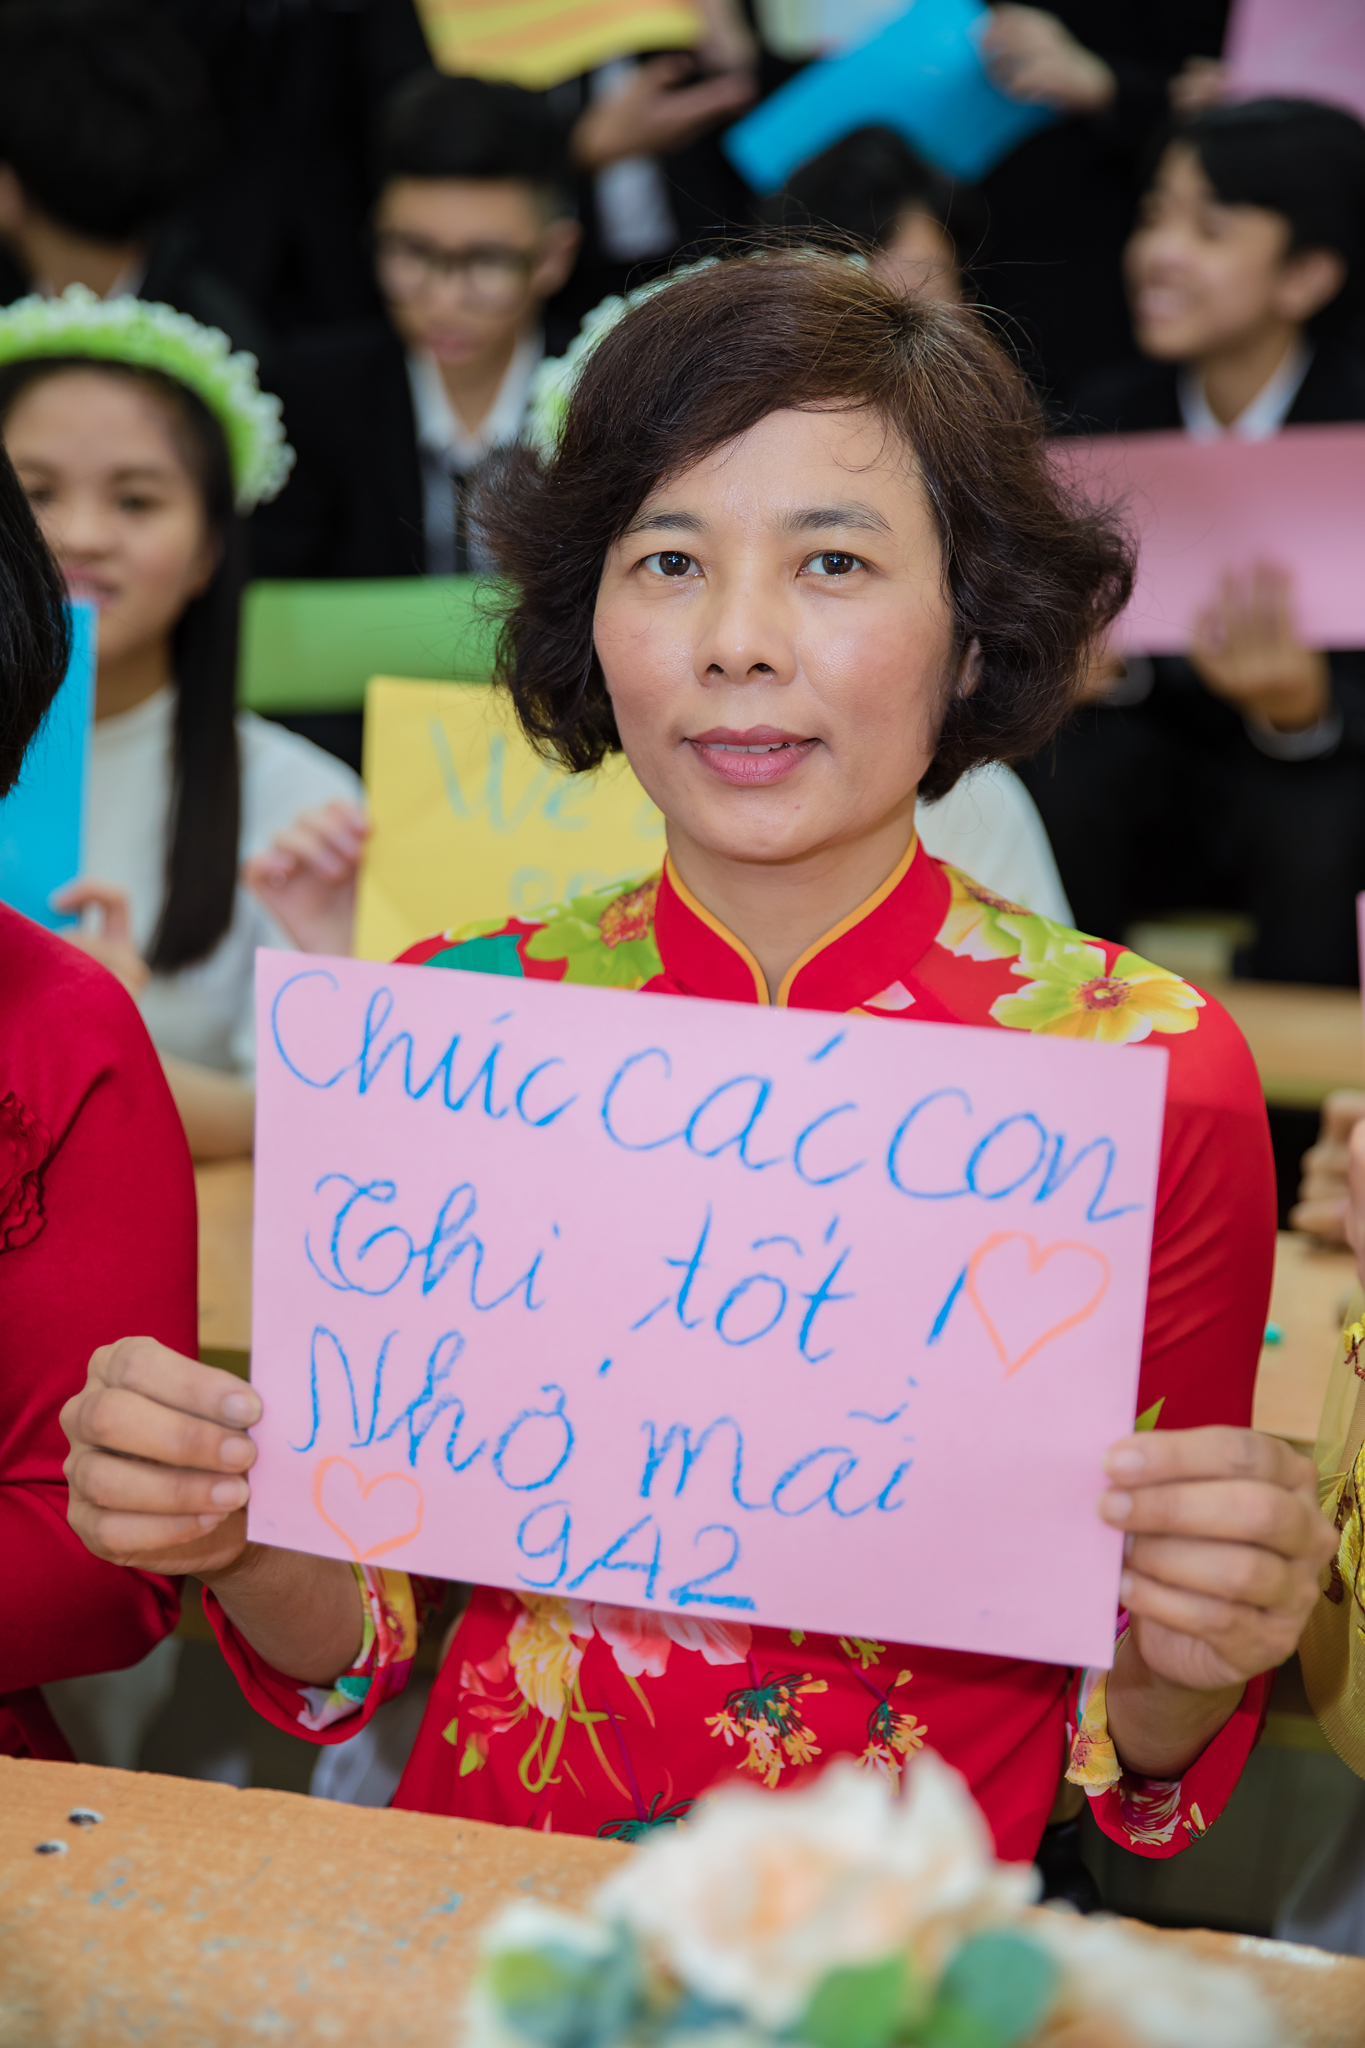 Chúc các con
Thi tốt !
Nhớ mãi
9A2
We